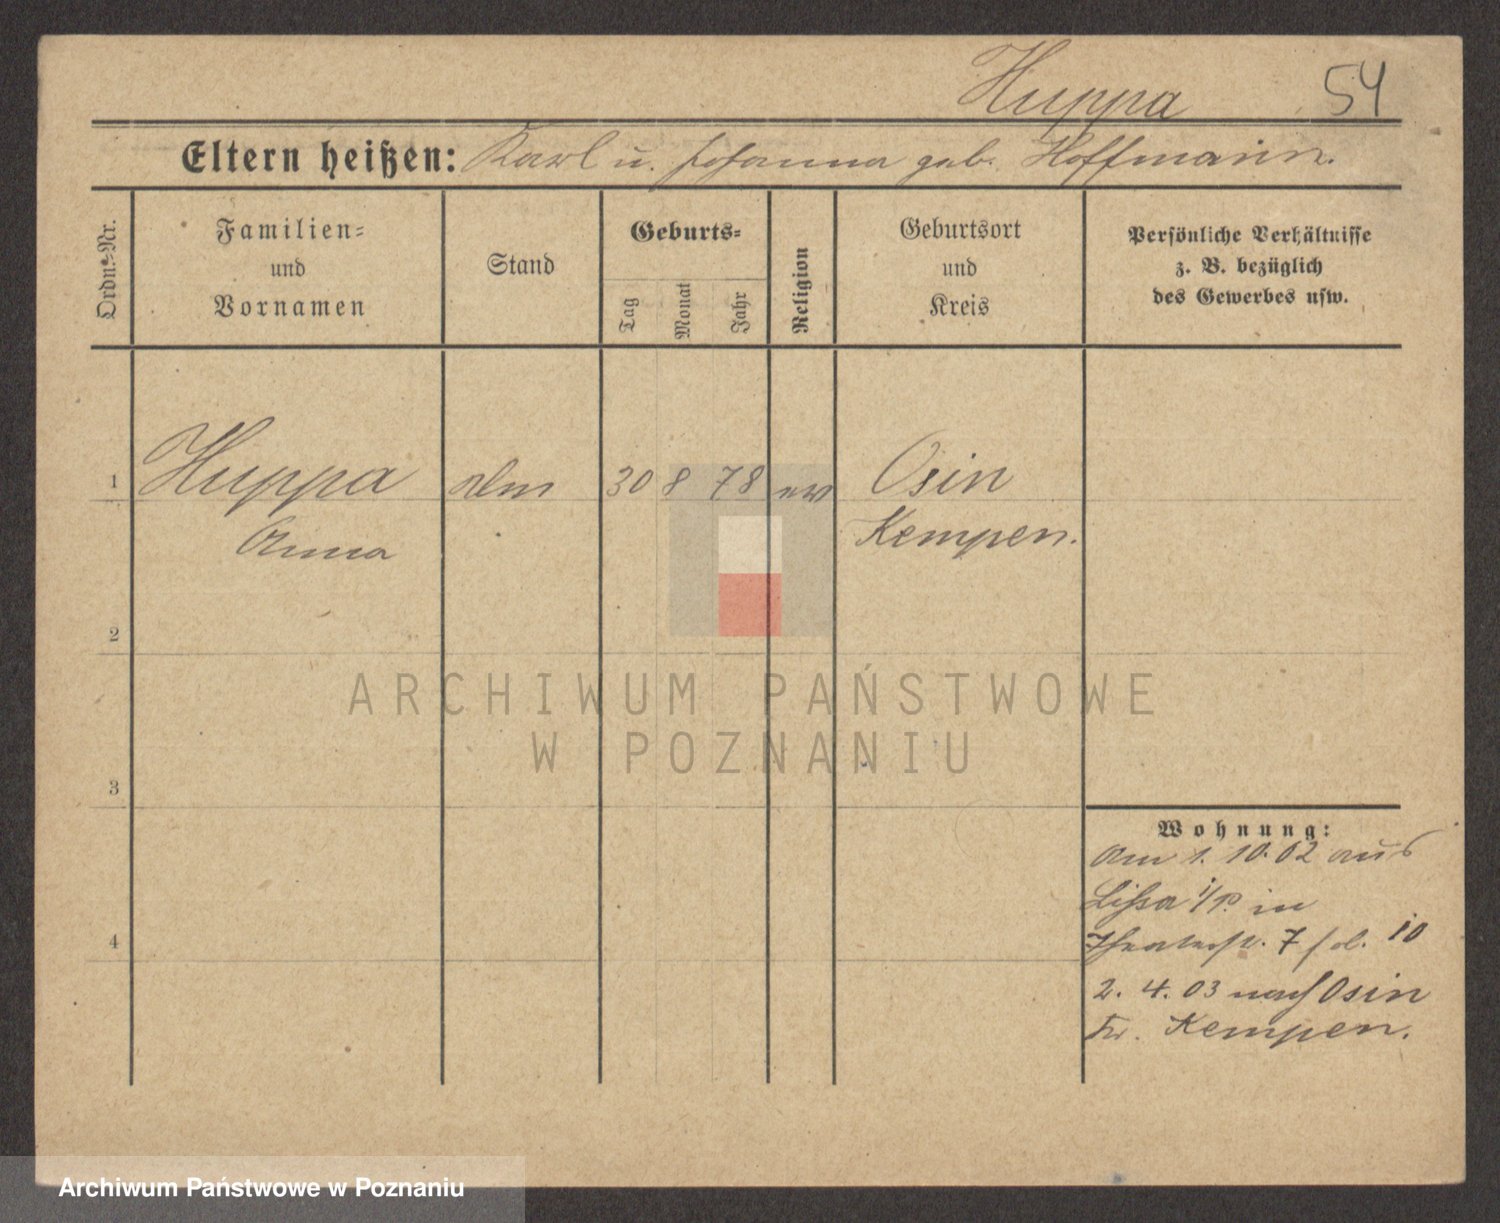 Huppa 54
Eltern heißen: Karl u. Johanna geb. Hoffmann.
Ordn.-Nr.
Familien-
und
Vornamen
Stand
Geburts-
Tag
Monat
Jahr
Religion
Geburtsort
und
Kreis
Persönliche Verhältnisse
z. B. bezüglich
des Gewerbes usw.
1 Huppa 30 8 78 ev Osin
Anna Kempen.
2
3
4
Wohnung:
Am 1. 10. 02 aus
Lissa i/P. in
Theaterstr. 7 10
2. 4. 03 nach Osin
Kr. Kempen.
ARCHIWUM PAŃSTWOWE
W POZNANIU
Archiwum Państwowe w Poznaniu